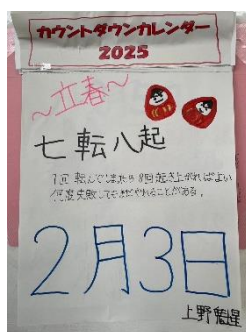 カウントダウンカレンダー
2025
～立春～
七転八起
7回転んでしまっても8回起き上がればよい
何度失敗してもまだやれることがある。
2月3日
上野